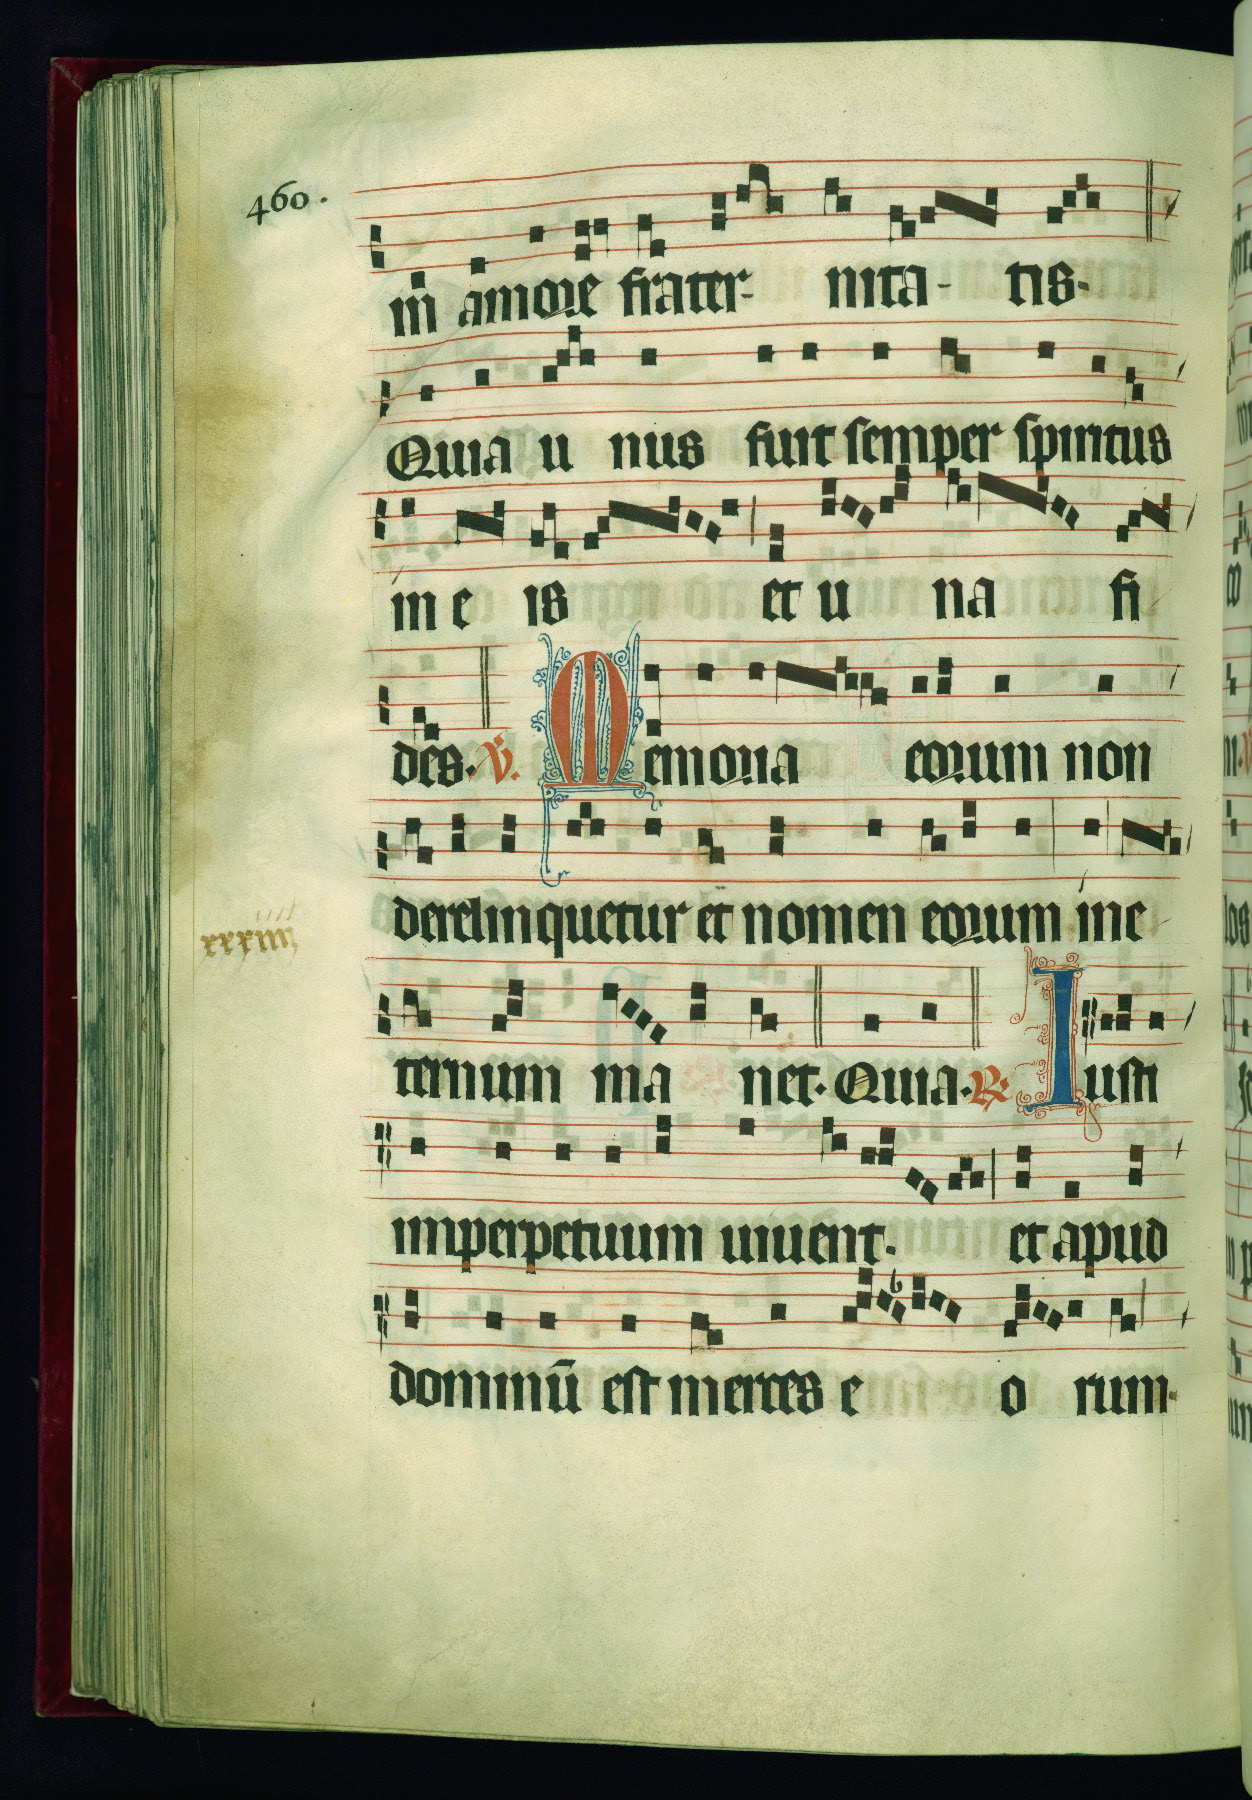 460.
in amore frater- nita- tis.
Quia u nus fuit semper spiritus
in e is et u na fi
des. V. Memoria eorum non
derelinquetur et nomen eorum in e
xxxiiii
ternum ma net. Quia. R. Iusti
imperpetuum uiuent. et apud
dominū est merces e o rum.